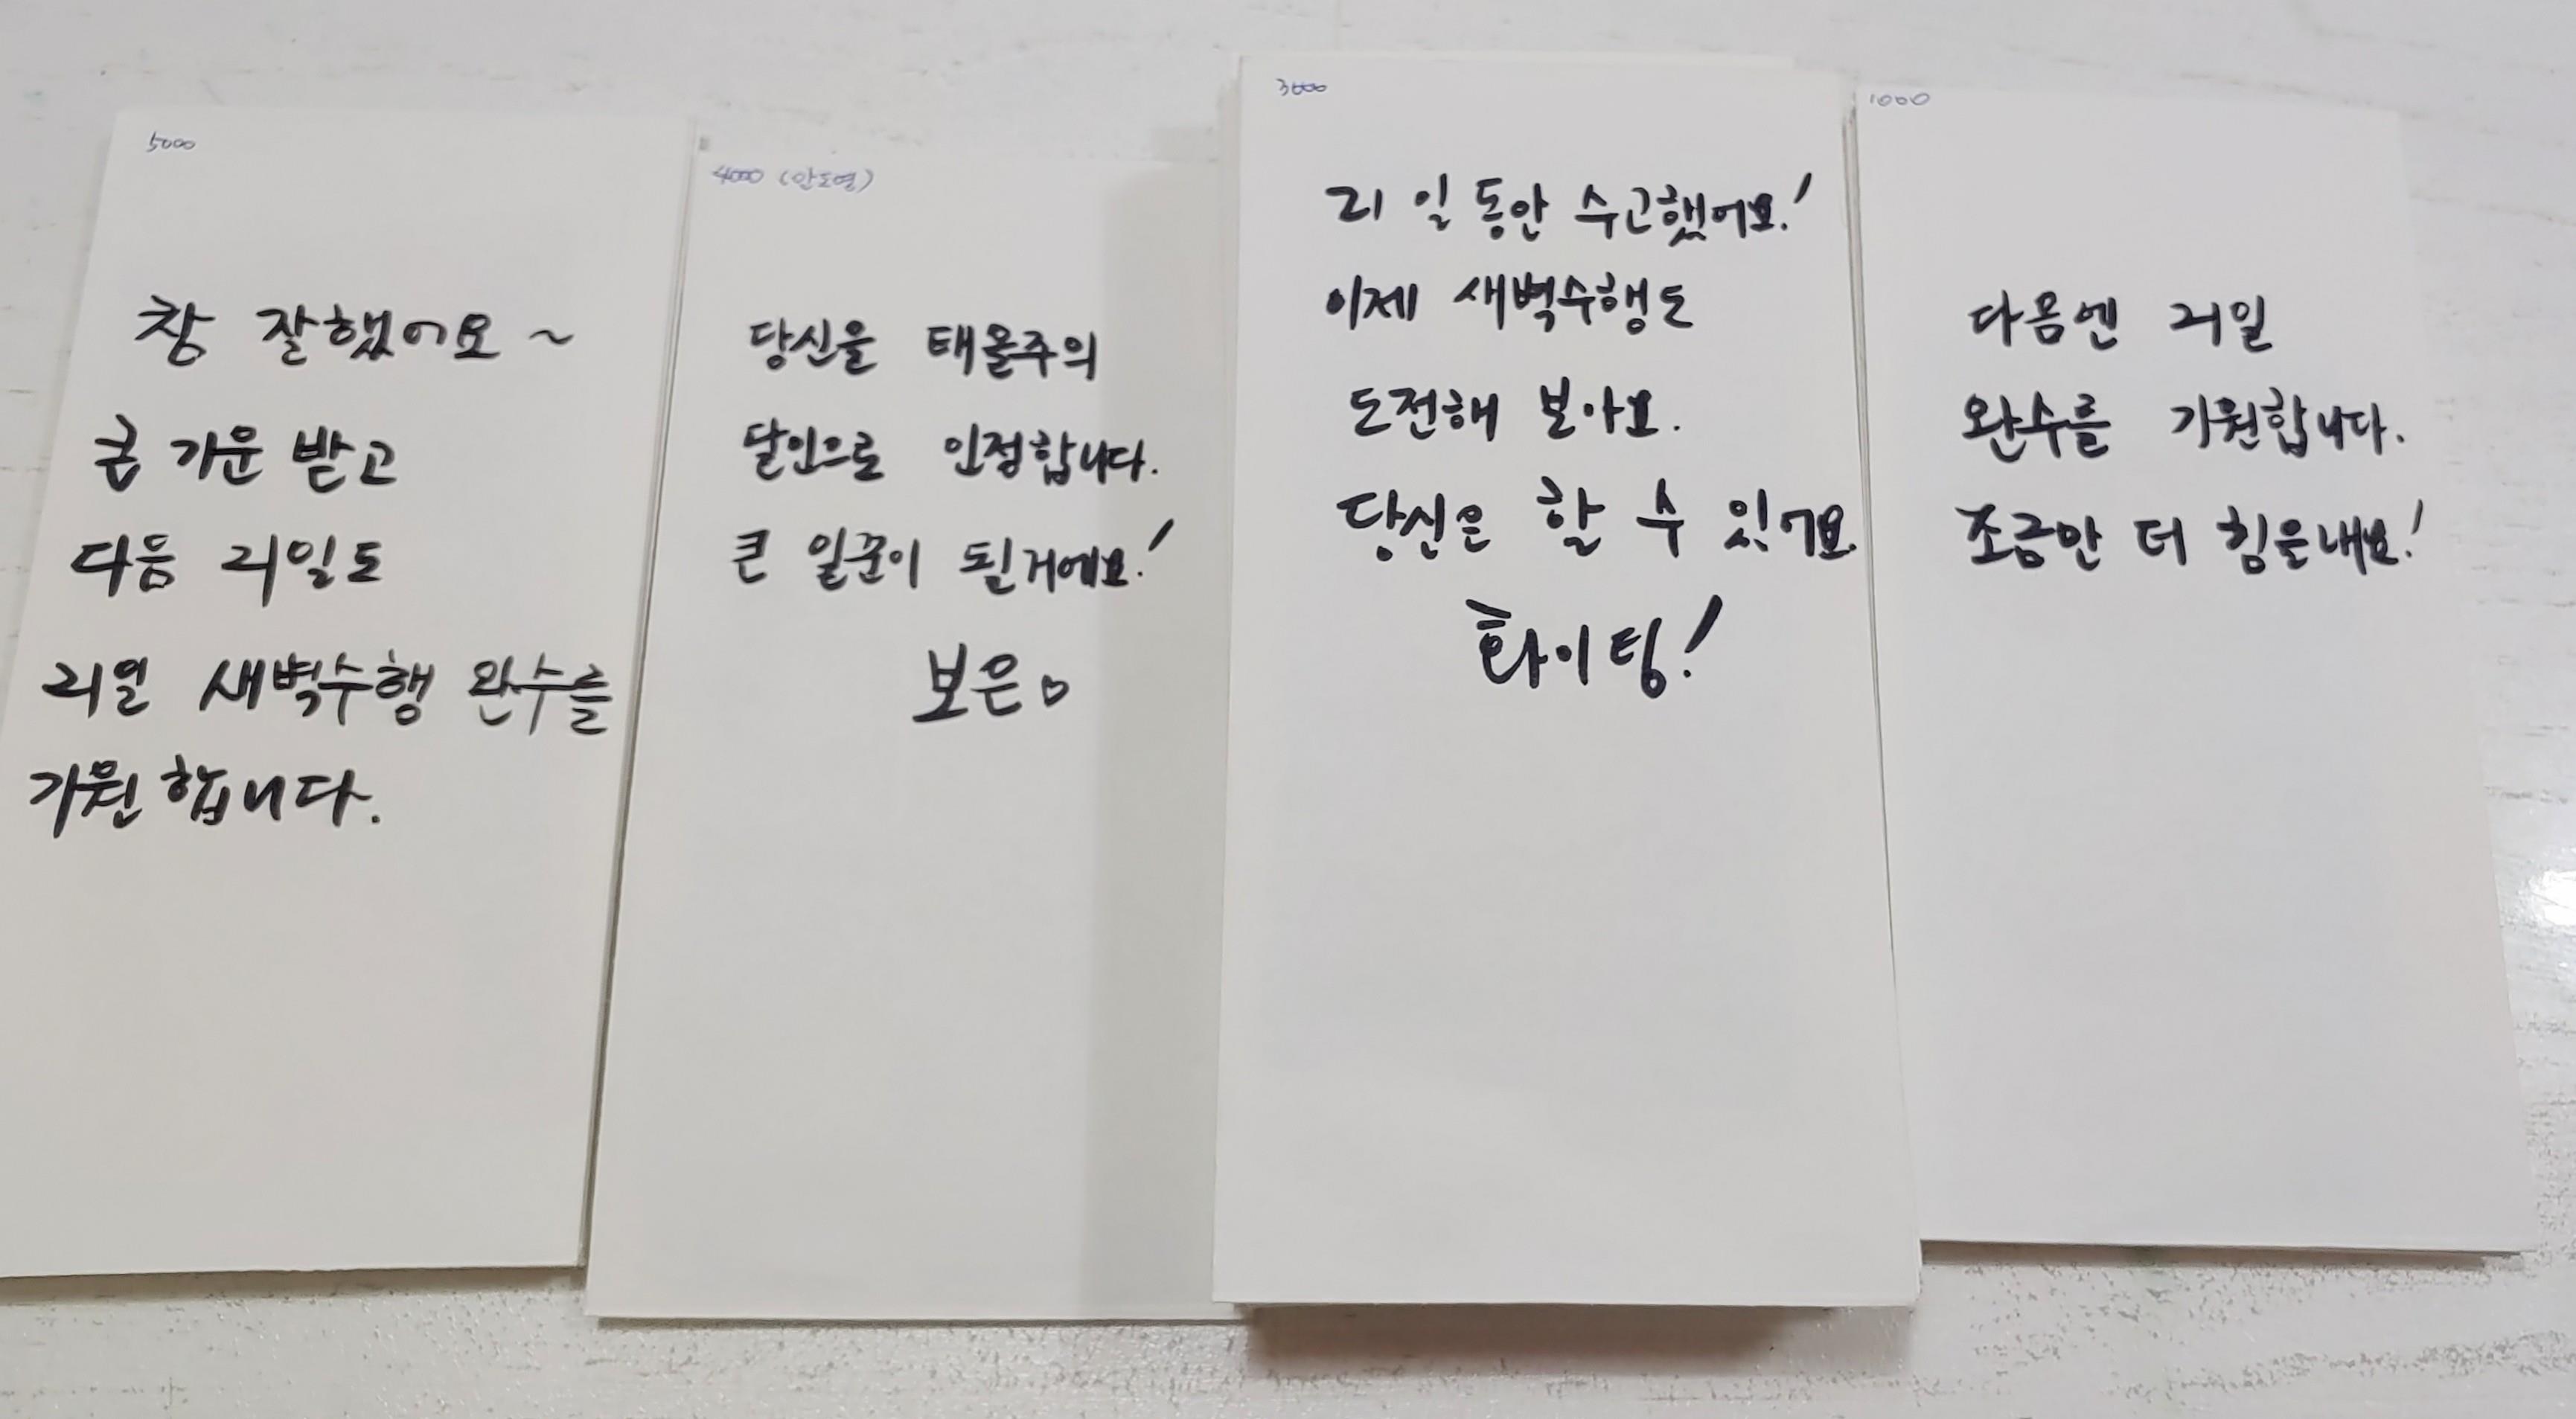 5000
참 잘했어요 ~
큰 기운 받고
다음 21일도
21일 새벽수행 완수를
기원합니다.
4000 (안도열)
당신을 태을주의
달인으로 인정합니다.
큰 일꾼이 될거에요!
보은♡
3000
21일 동안 수고했어요!
이제 새벽수행도
도전해 보아요.
당신은 할 수 있어요.
화이팅!
1000
다음엔 21일
완수를 기원합니다.
조금만 더 힘을내요!